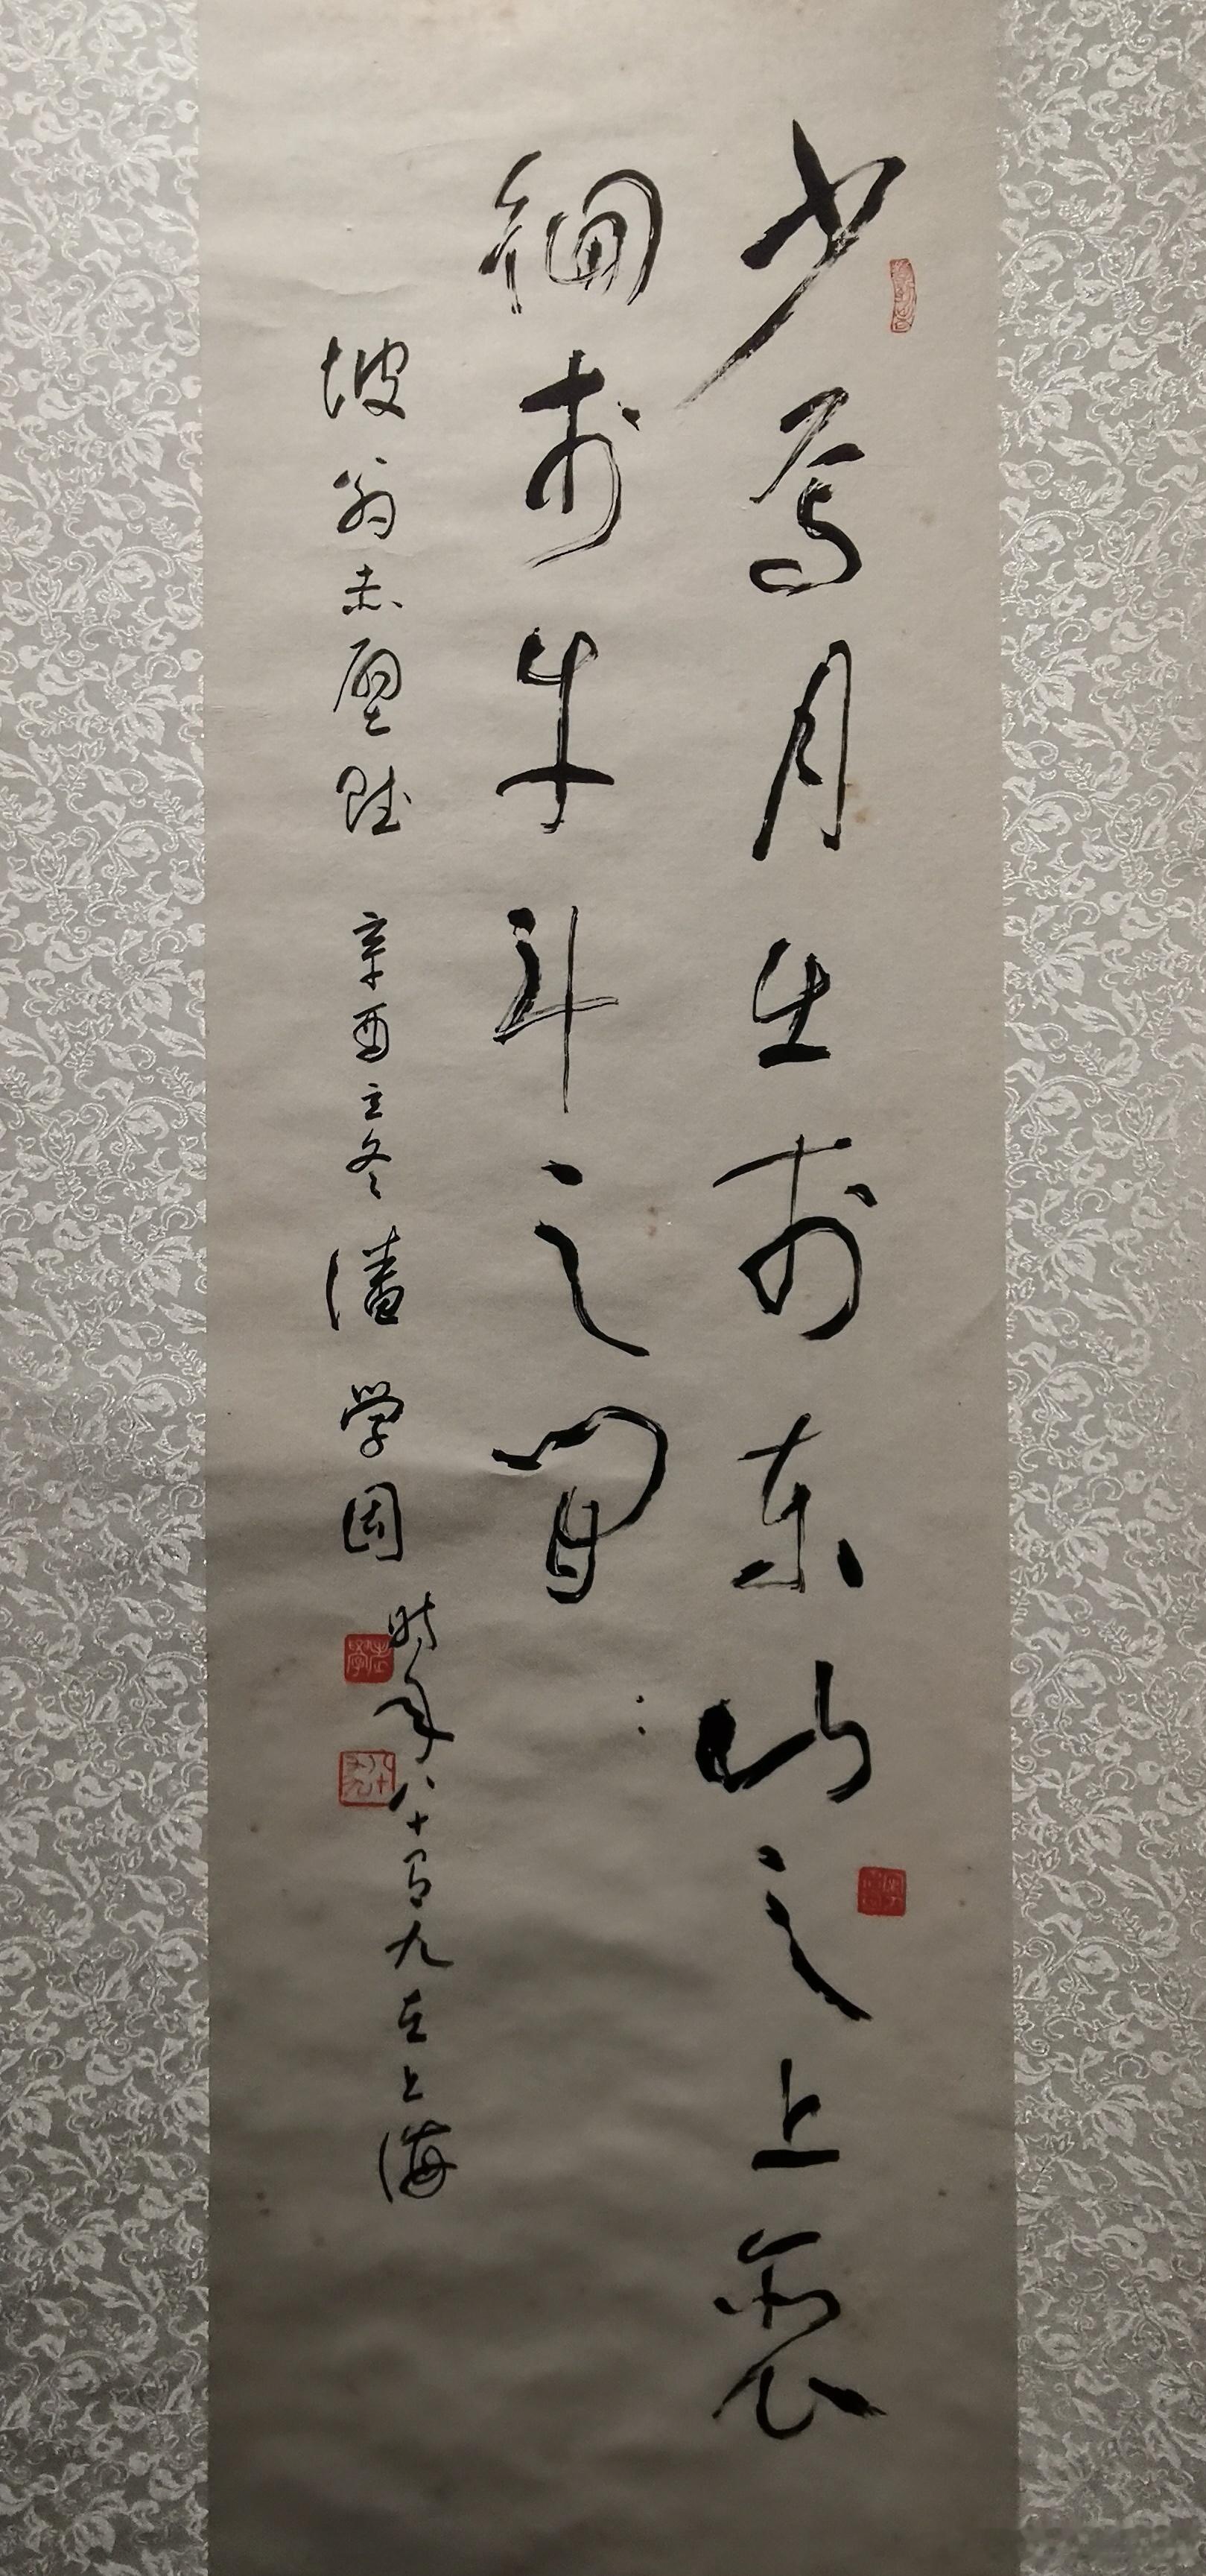 少焉月生於東山之上裵
徊於牛斗之間
坡翁赤壁賦 辛酉立冬 潘學固
時年八十有九在上海